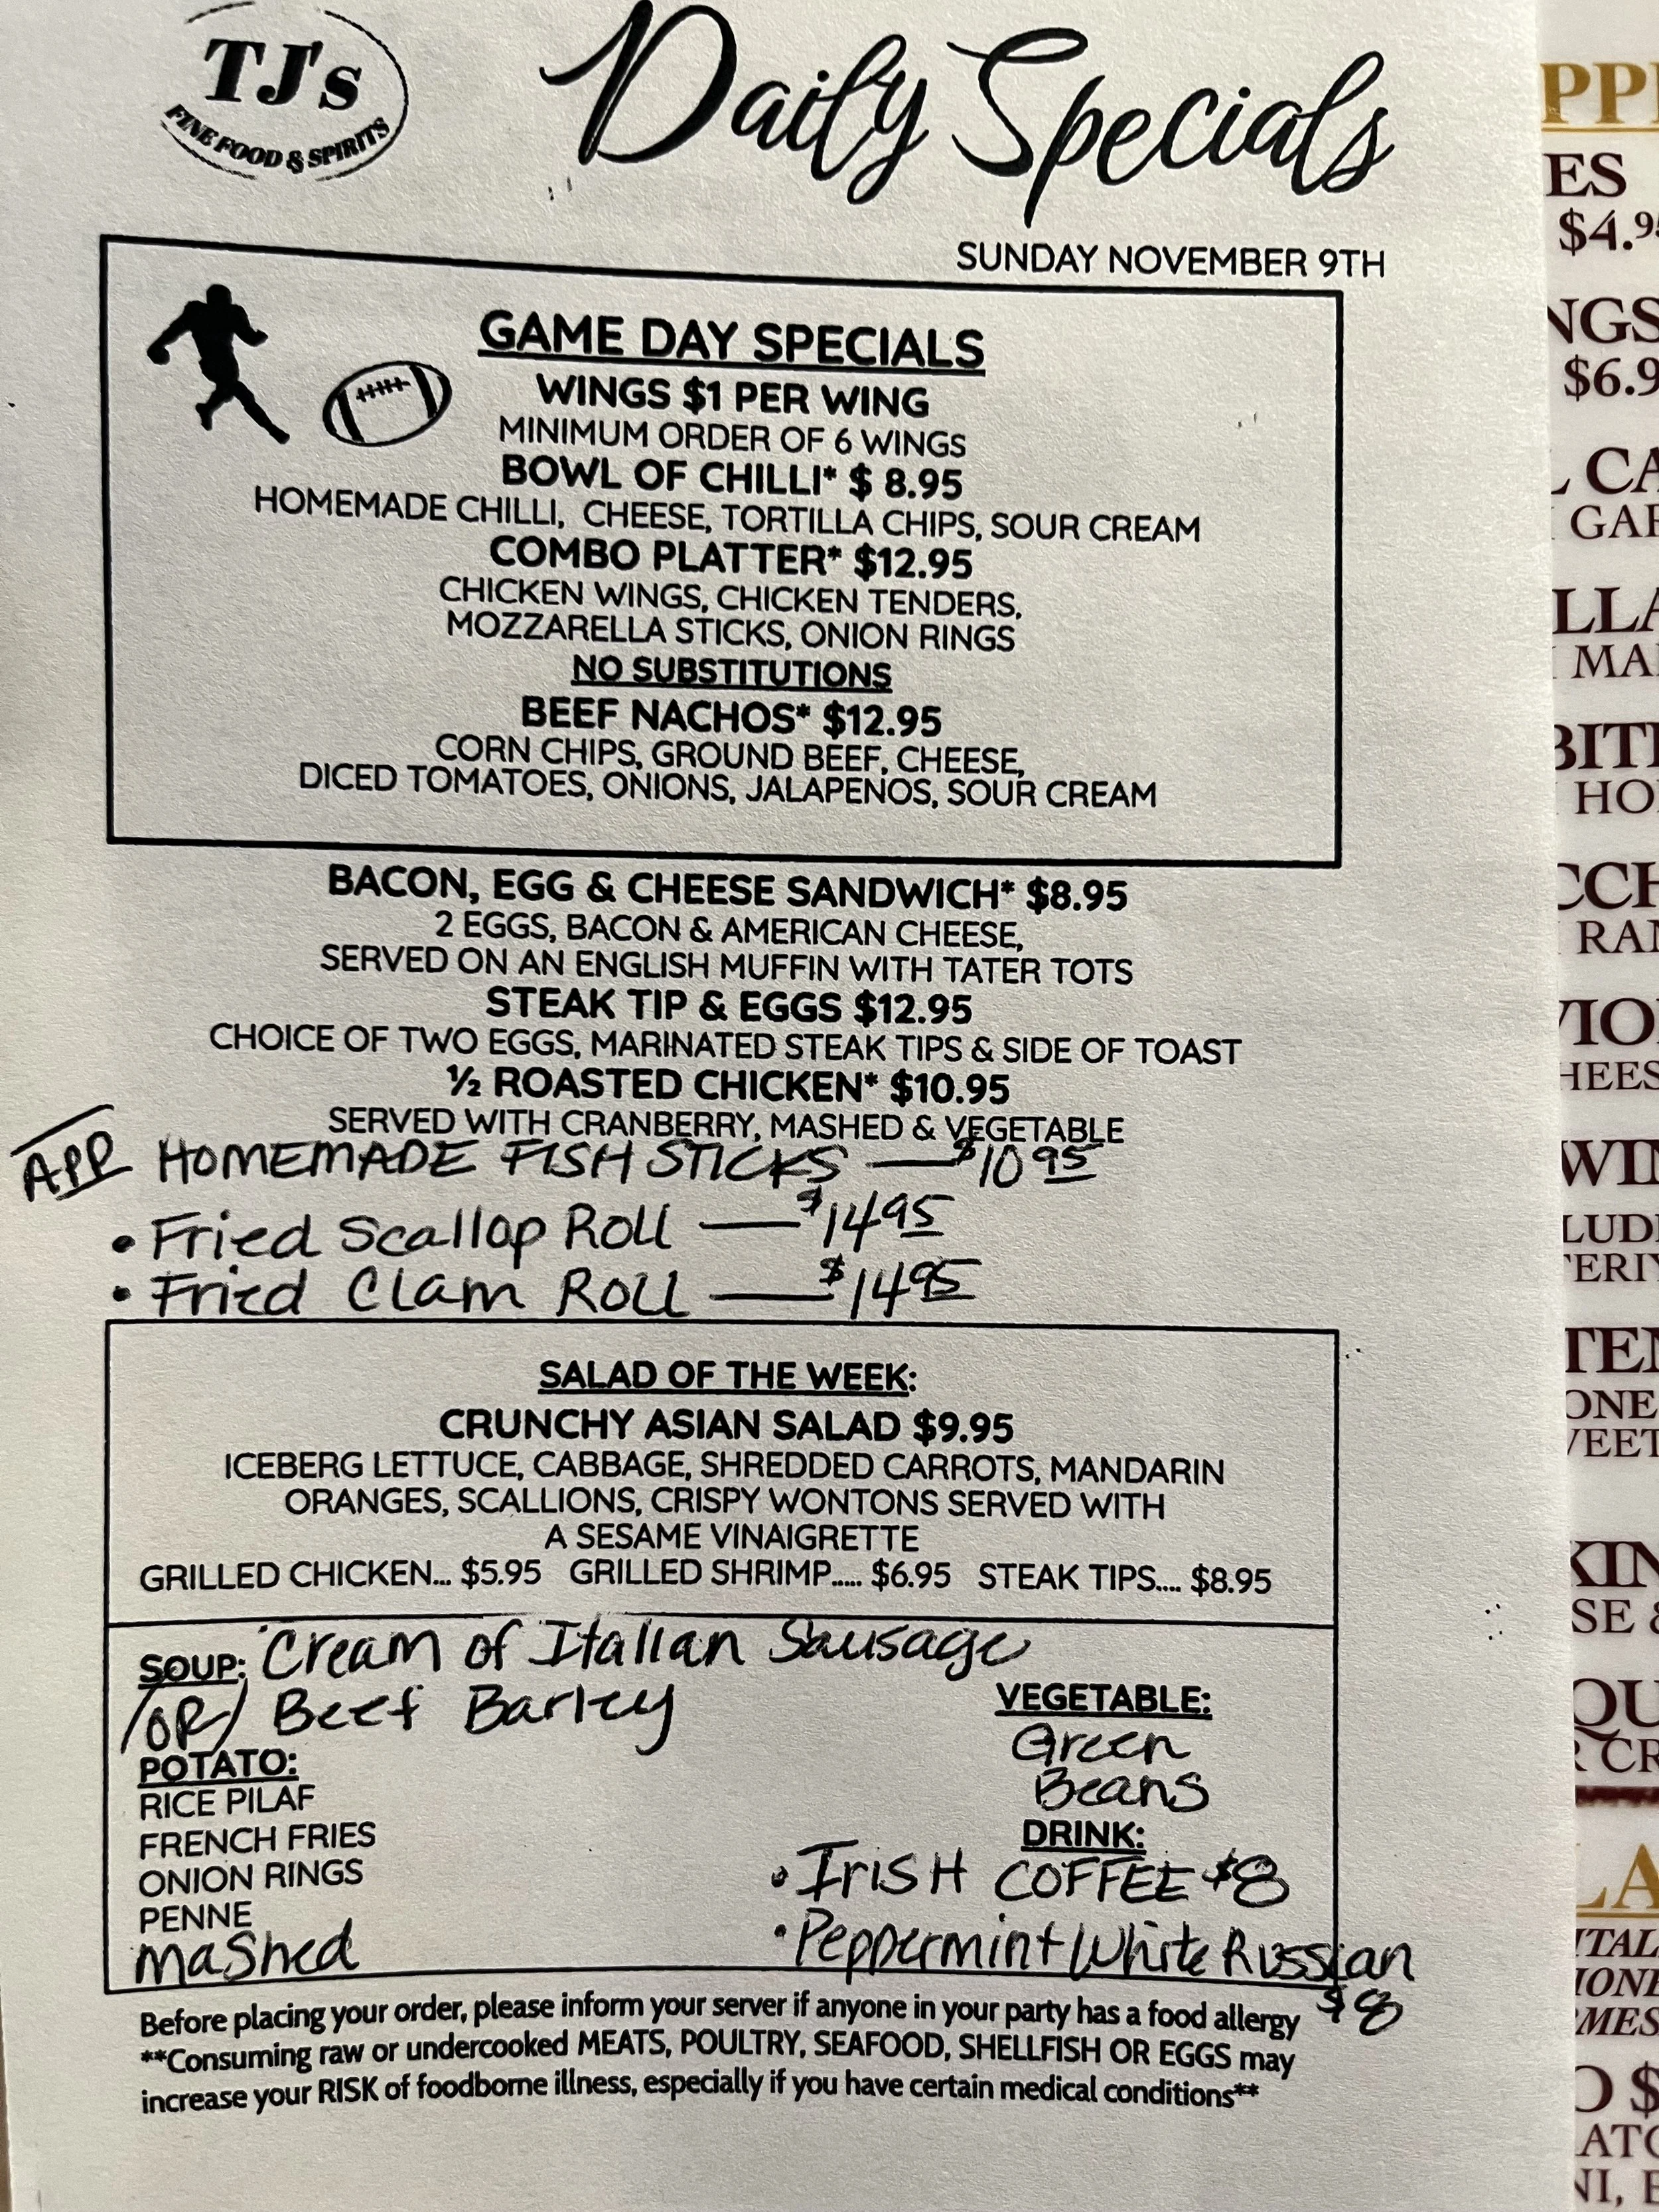 TJ's
FINE FOOD & SPIRITS
Daily Specials
SUNDAY NOVEMBER 9TH
GAME DAY SPECIALS
WINGS $1 PER WING
MINIMUM ORDER OF 6 WINGS
BOWL OF CHILLI* $ 8.95
HOMEMADE CHILLI, CHEESE, TORTILLA CHIPS, SOUR CREAM
COMBO PLATTER* $12.95
CHICKEN WINGS, CHICKEN TENDERS,
MOZZARELLA STICKS, ONION RINGS
NO SUBSTITUTIONS
BEEF NACHOS* $12.95
CORN CHIPS, GROUND BEEF, CHEESE,
DICED TOMATOES, ONIONS, JALAPENOS, SOUR CREAM
BACON, EGG & CHEESE SANDWICH* $8.95
2 EGGS, BACON & AMERICAN CHEESE,
SERVED ON AN ENGLISH MUFFIN WITH TATER TOTS
STEAK TIP & EGGS $12.95
CHOICE OF TWO EGGS, MARINATED STEAK TIPS & SIDE OF TOAST
½ ROASTED CHICKEN* $10.95
SERVED WITH CRANBERRY, MASHED & VEGETABLE
APP HOMEMADE FISH STICKS — $10 95
• Fried Scallop Roll — $14 95
• Fried Clam Roll — $14 95
SALAD OF THE WEEK:
CRUNCHY ASIAN SALAD $9.95
ICEBERG LETTUCE, CABBAGE, SHREDDED CARROTS, MANDARIN
ORANGES, SCALLIONS, CRISPY WONTONS SERVED WITH
A SESAME VINAIGRETTE
GRILLED CHICKEN... $5.95 GRILLED SHRIMP..... $6.95 STEAK TIPS.... $8.95
SOUP: Cream of Italian Sausage
/OR/ Beef Barley
POTATO:
RICE PILAF
FRENCH FRIES
ONION RINGS
PENNE
Mashed
VEGETABLE:
Green
Beans
DRINK:
• IrisH COFFEE $8
• Peppermint White Russian
$8
Before placing your order, please inform your server if anyone in your party has a food allergy
**Consuming raw or undercooked MEATS, POULTRY, SEAFOOD, SHELLFISH OR EGGS may
increase your RISK of foodborne illness, especially if you have certain medical conditions**